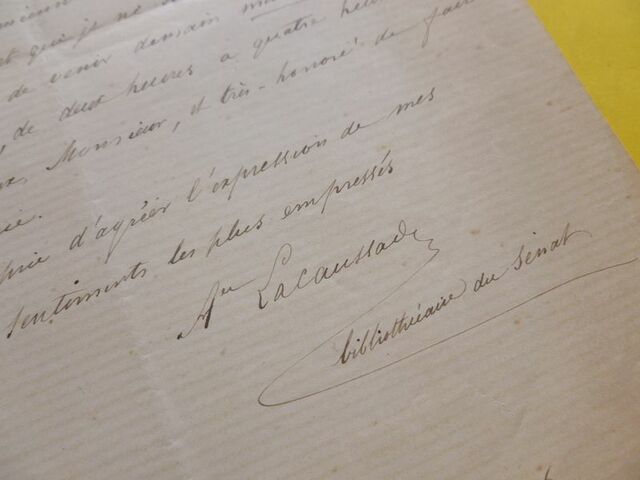 et que je ne
de venir demain
de deux heures à quatre heures
Monsieur, et très-honoré de faire
prie d'agréer l'expression de mes
sentiments les plus empressés
Ate Lacaussade
bibliothécaire du Sénat